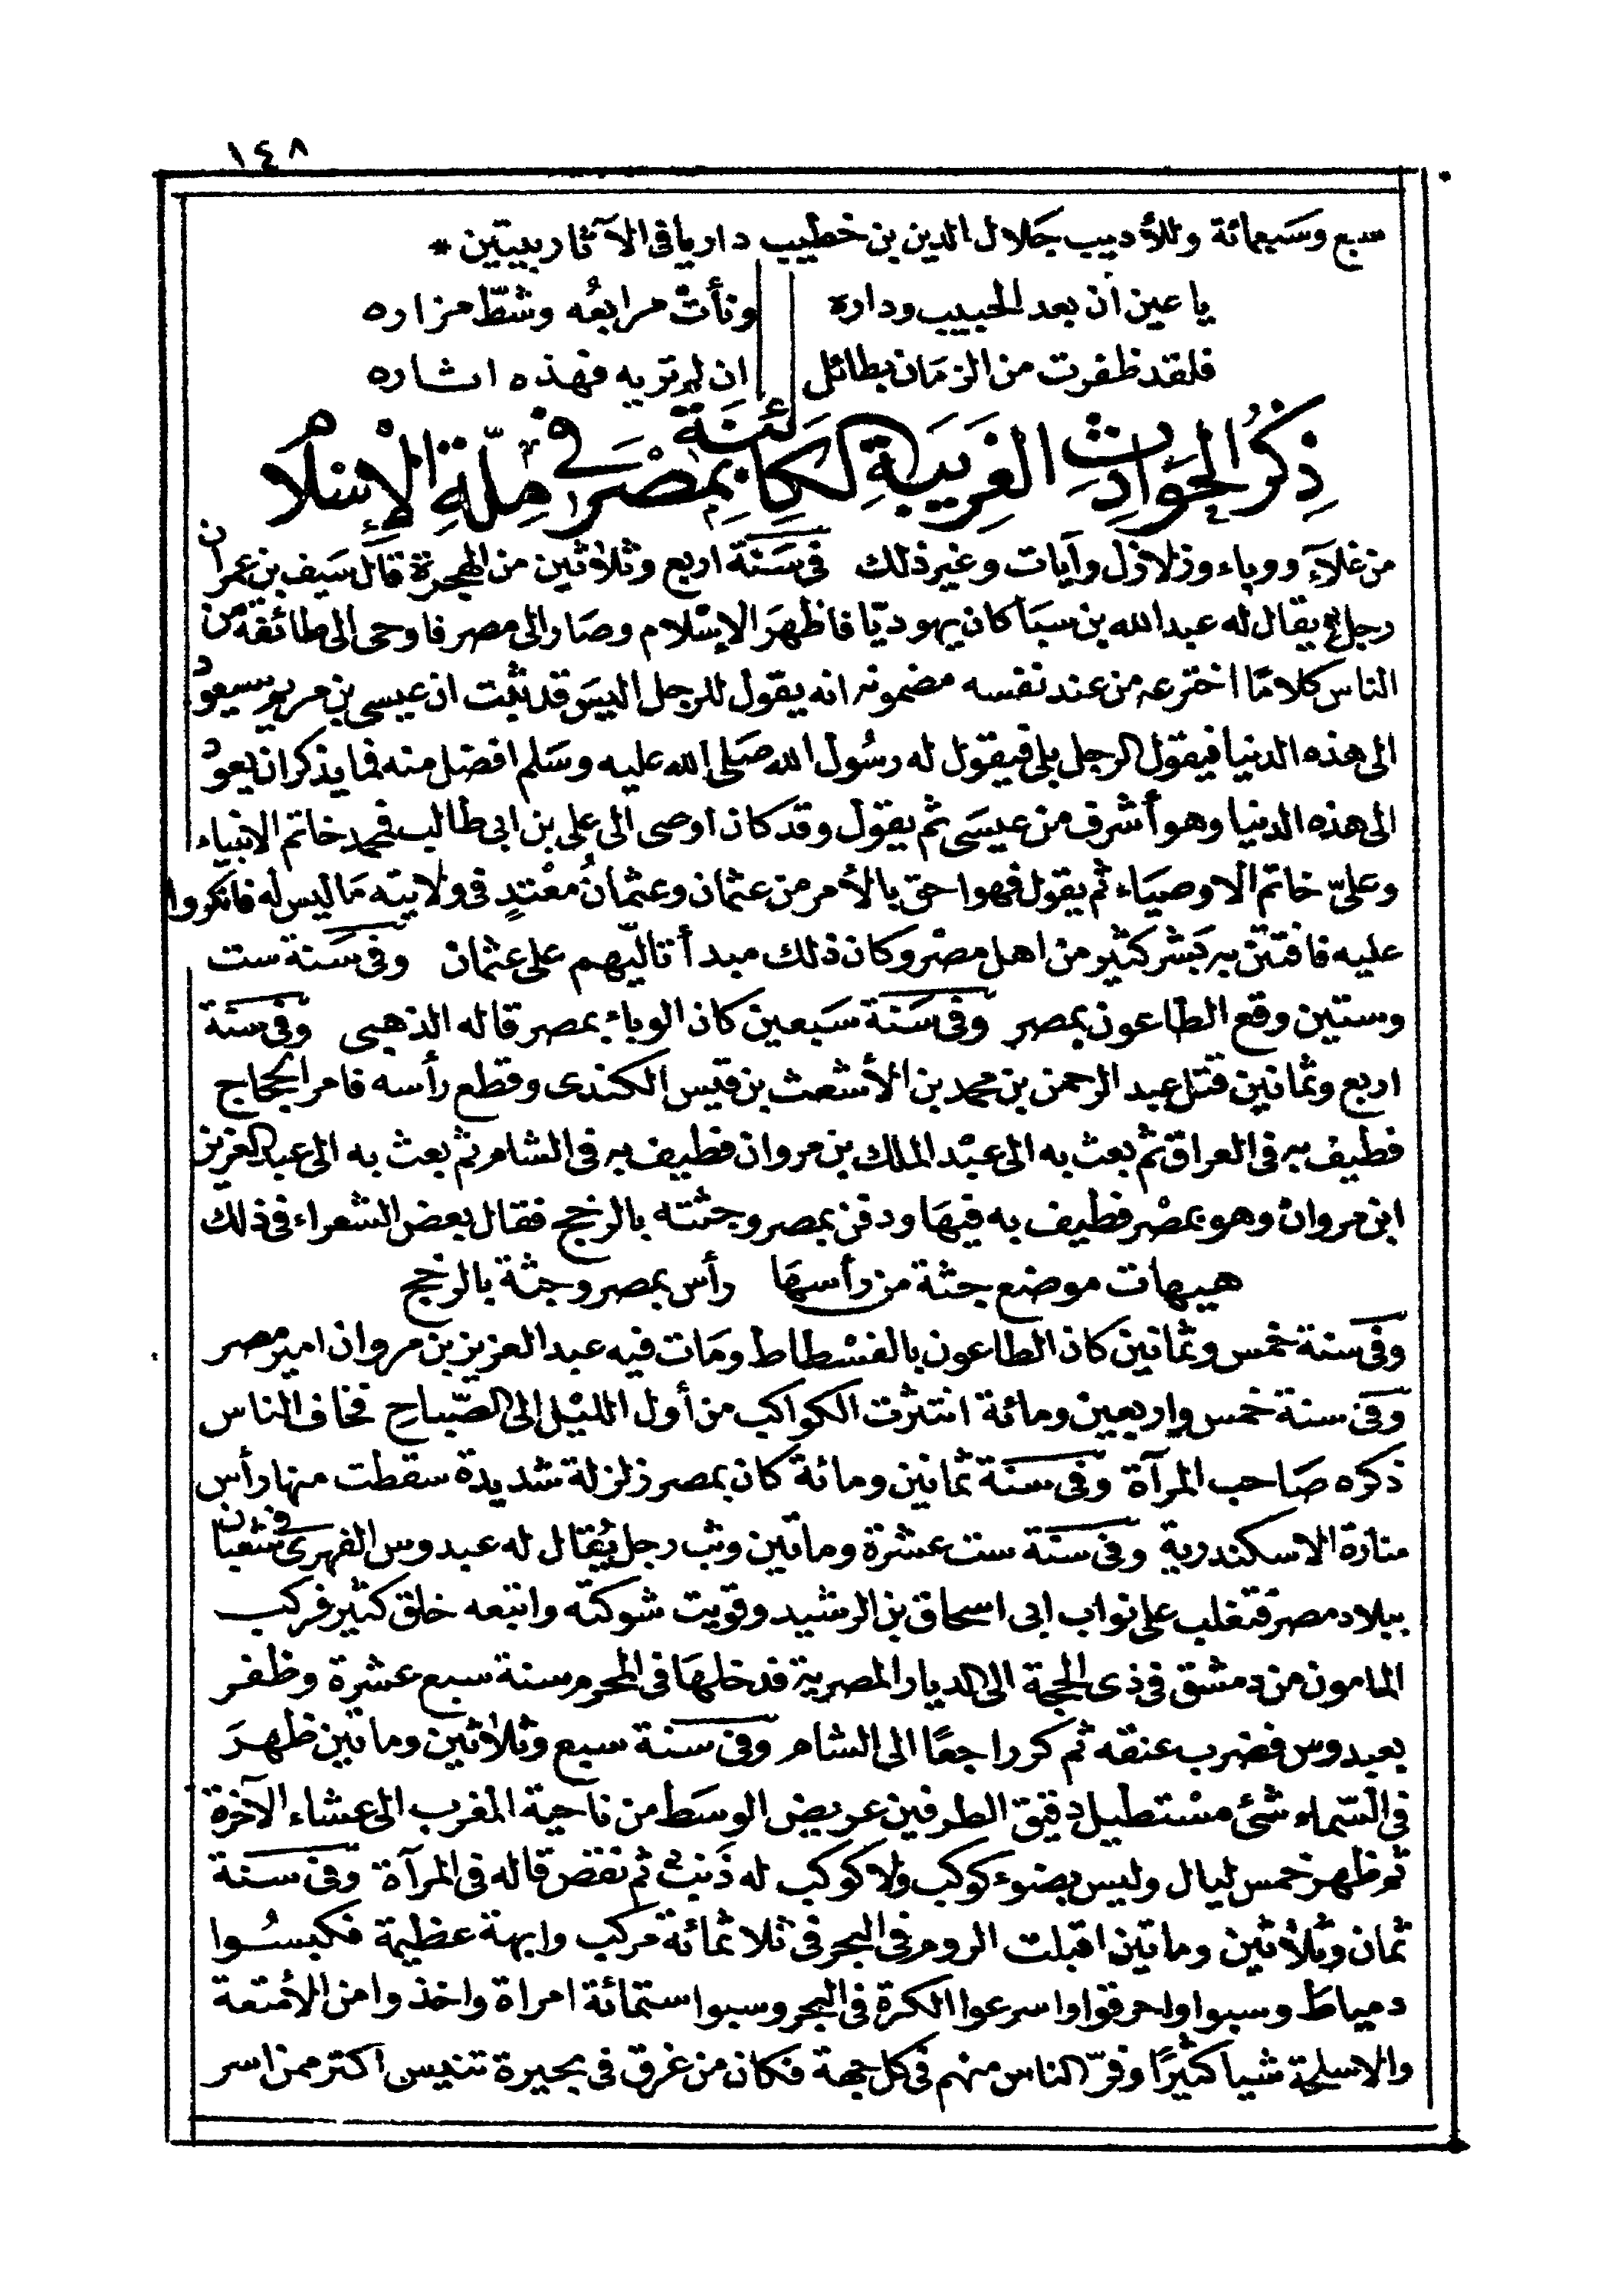 ١٤٨
سبع وسبعمائة وللأديب جلال الدين بن خطيب داريا في الآثار بيتين *
يا عين ان بعد الحبيب وداره ونأت مرابعُه وشطّ مزاره
فلقد ظفرت من الزمان بطائل ان لم تريه فهذه اثاره
ذِكرُ الحَوادِثِ الغَرِيبَةِ الكَائِنَةِ بِمِصْرَ في مِلّةِ الإِسْلَامِ
من غلآءٍ ووباء وزلازل وآيات وغير ذلك في سَنَة اربع وثلاثين من الهجرة قال سَيف بن عمر ان
رجلا يقال له عبد الله بن سبَا كان يهوديّا فاظهرَ الإسْلام وصَار الى مصر فاوحى الى طائفة من
الناس كلامًا اخترعه من عند نفسه مضمونه انه يقول للرجل اليسَ قد ثبت ان عيسى بن مريم سيعود
الى هذه الدنيا فيقول الرجل بلى فيقول له رسُول الله صَلى الله عليه وسَلم افضل منه فما يذكر ان يعود
الى هذه الدنيا وهو أشرف من عيسَى ثم يقول وقد كان اوصى الى على بن ابى طالب فمحمد خاتم الانبياء
وعلىّ خاتم الاوصيَاء ثم يقول فهو احق بالأمر من عثمان وعثمانُ معْتدٍ فى ولايته مَا ليس له فانكروا
عليه فافتتن به بَشر كثير من اهل مصْر وكان ذلك مبدأ تاليّهم على عثمان وفى سَنة ست
وستين وقع الطاعون بمصر وفى سَنَة سَبعين كان الوباء بمصر قاله الذهبى وفى سنة
اربع وثمانين قتل عبد الرحمن بن محمد بن الأشعث بن قيس الكندى وقطع رأسه فامر الحجاج
فطيف به فى العراق ثم بعث به الى عبْد الملك بن مروان فطيف به فى الشام ثم بعث به الى عبد العزيز
ابن مروان وهو بمصْر فطيف به فيهَا ودفن بمصر وجثته بالرخج فقال بعض الشعراء فى ذلك
هيهات موضع جثة من رأسهَا رأس بمصر وجثة بالرخج
وفى سنة خمس وثمانين كان الطاعون بالفسْطاط ومَات فيه عبد العزيز بن مروان امير مصر
وفى سنة خمس واربعين ومائة انتثرت الكواكب من أول الليْل الى الصّباح فخاف الناس
ذكره صَاحب المرآة وفى سَنة ثمانين ومائة كان بمصر زلزلة شديدة سقطت منها رأس
منارة الاسكندرية وفى سَنة ست عشرة وماتين وثب رجل يُقال له عبدوس الفهرى فى شعبان
ببلاد مصر فتغلب على نواب ابى اسحاق بن الرشيد وقويت شوكته واتبعه خلق كثير فركب
المامون من دمشق فى ذى الحجة الى الديار المصرية فدخلهَا فى المحرم سنة سبع عشرة وظفر
بعبدوس فضرب عنقه ثم كر راجعًا الى الشام وفى سنة سبع وثلاثين وماتين ظهرَ
فى السّماء شئ مسْتطيل دقيق الطرفين عريض الوسَط من ناحية المغرب الى عشاء الآخرة
ثم ظهر خمس ليال وليس بضوء كوكب ولا كوكب له ذَنب ثم نقض قاله فى المرآة وفى سَنة
ثمان وثلاثين وماتين اقبلت الروم فى البحر فى ثلاثمائة مركب وابهة عظيمة فكبسُوا
دمياط وسبوا واحرقوا واسرعوا الكرة فى البحر وسبوا ستمائة امراة واخذوا من الأمتعة
والاسلحة شيا كثيرًا وفرّ الناس منهم فى كل جهة فكان من غرق فى بحيرة تنيس اكثر ممن اسر